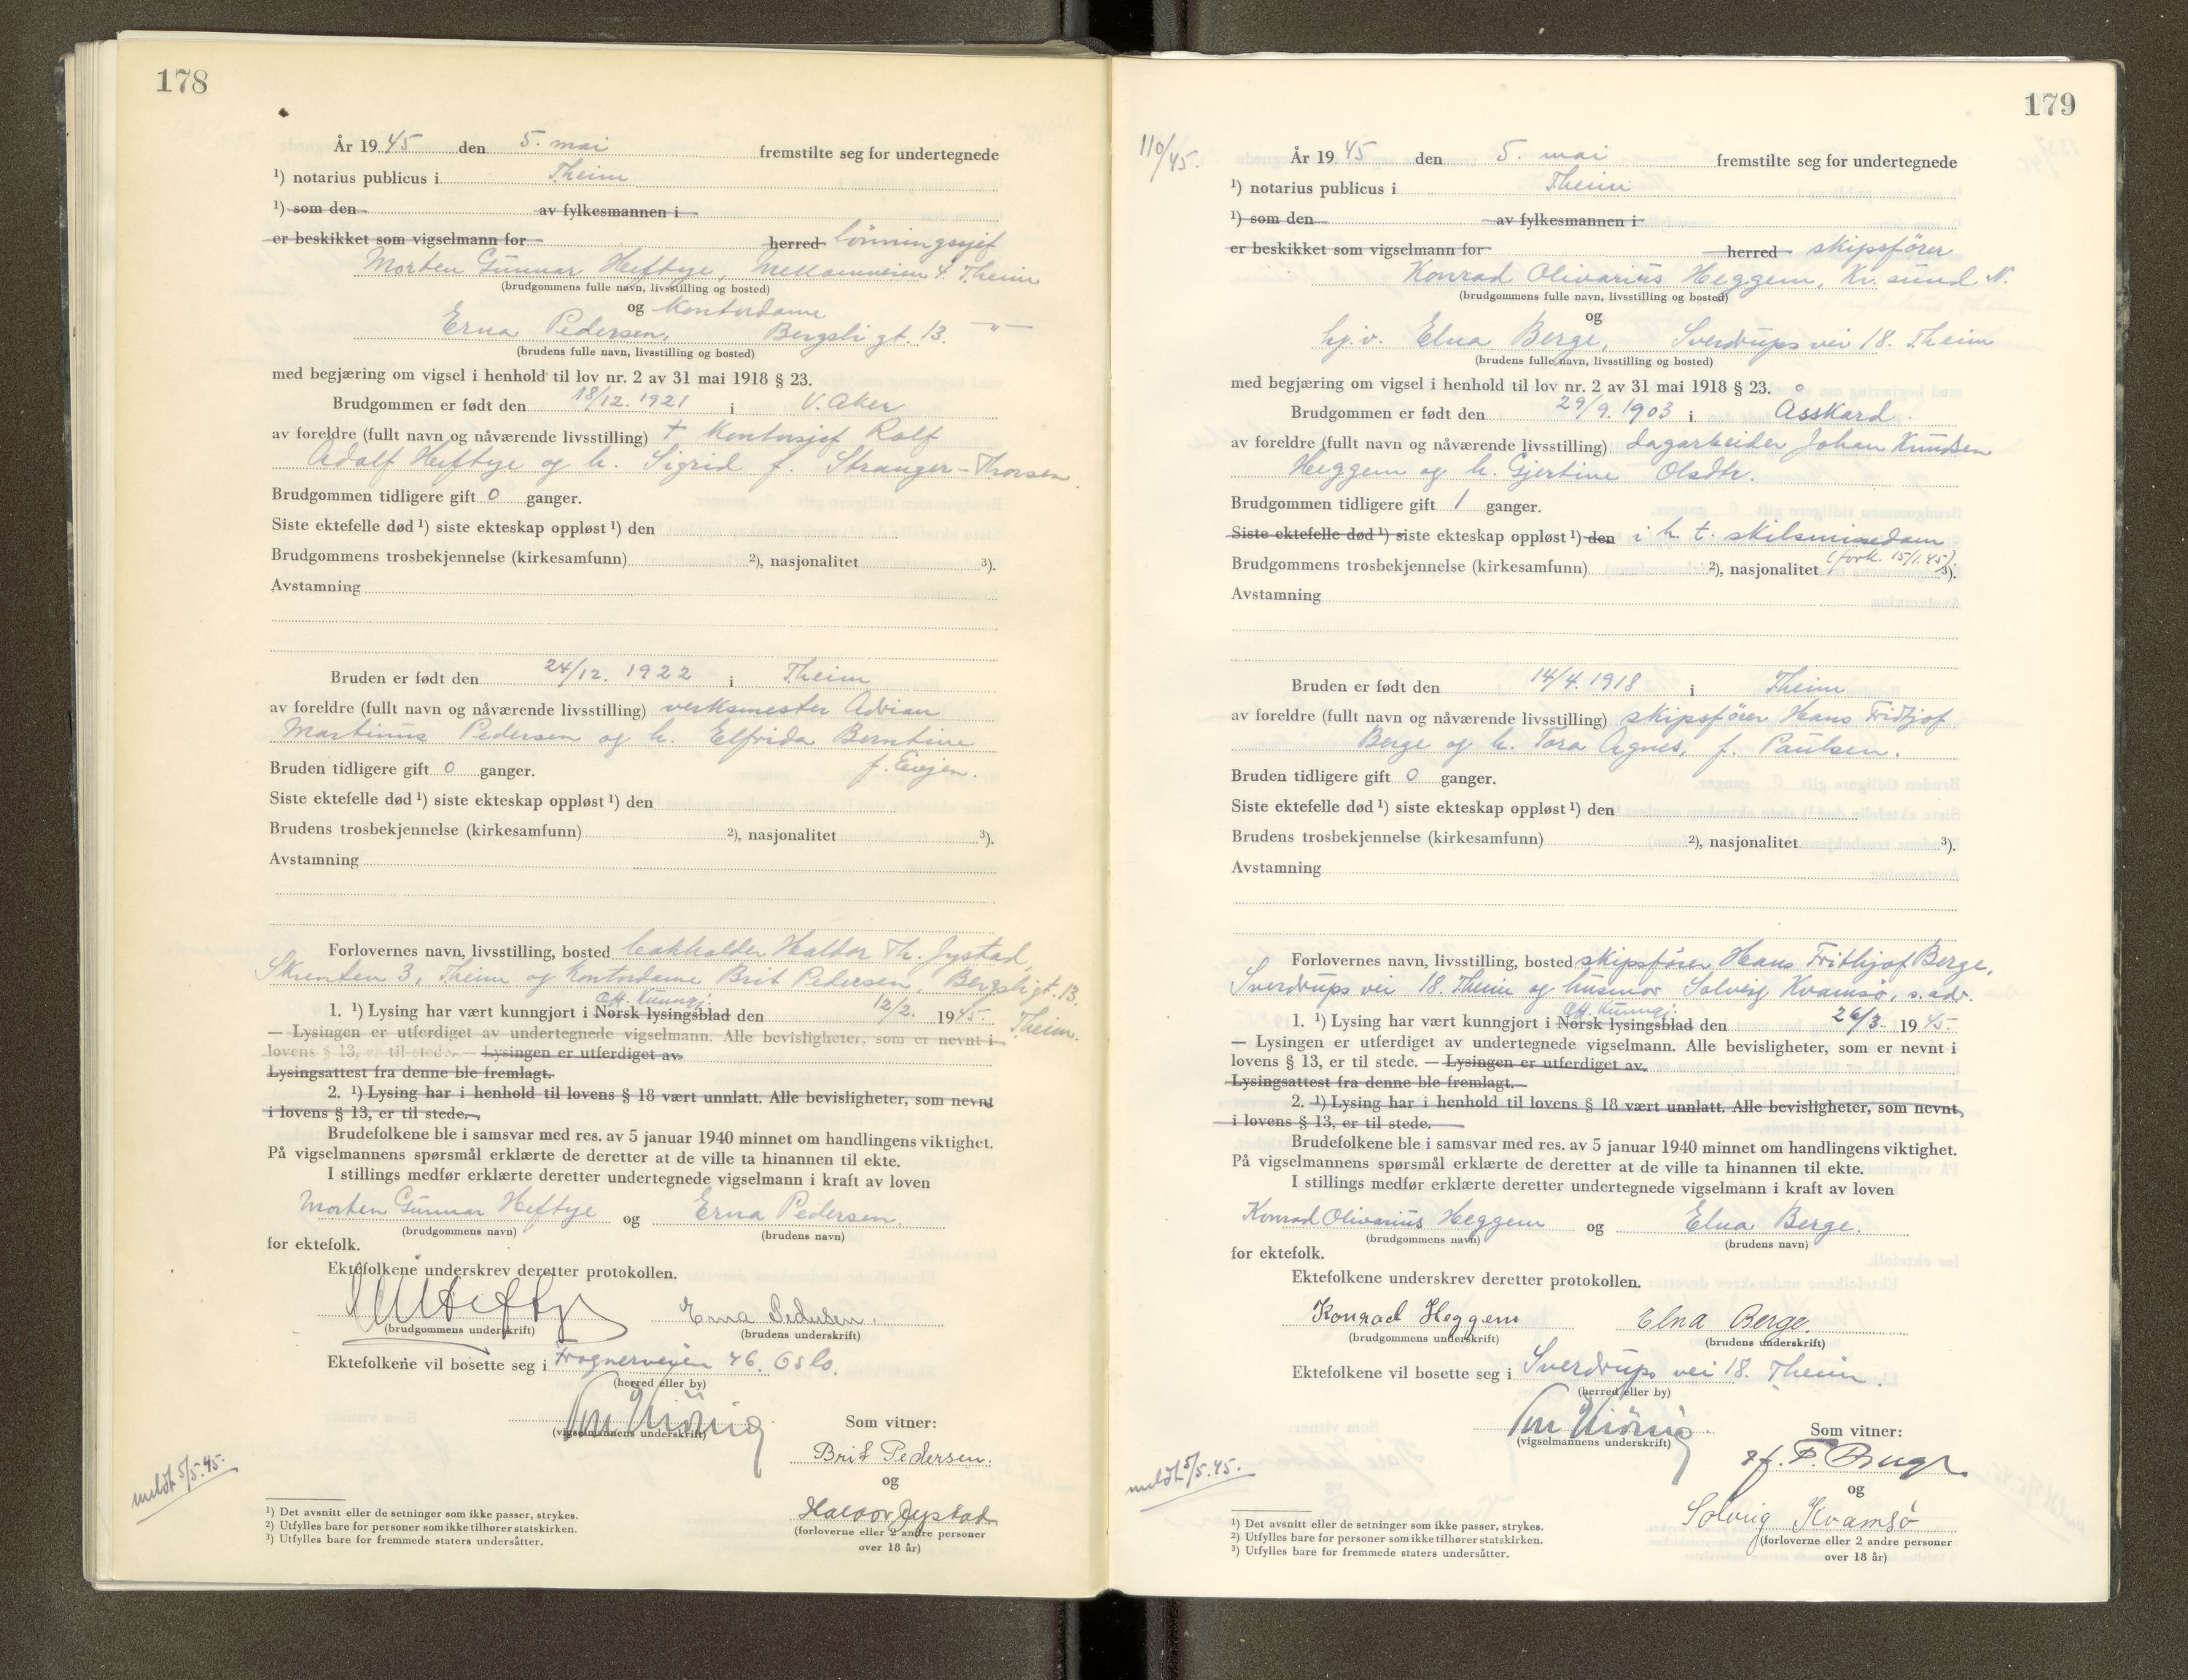 178
År 1945 den 5. mai fremstilte seg for undertegnede
¹) notarius publicus i Theim
¹) som den av fylkesmannen i
er beskikket som vigselmann for herred lönningssjef
Morten Gunnar Heftye, Mellomveien 4. Theim
(brudgommens fulle navn, livsstilling og bosted)
og Kontordame
Erna Pedersen, Bergsli gt. 13. —"—
(brudens fulle navn, livsstilling og bosted)
med begjæring om vigsel i henhold til lov nr. 2 av 31 mai 1918 § 23.
Brudgommen er født den 18/12. 1921 i V. Aker
av foreldre (fullt navn og nåværende livsstilling) + Kontorsjef Rolf
Adolf Heftye og h. Sigrid f. Stranger-Thorsen.
Brudgommen tidligere gift 0 ganger.
Siste ektefelle død ¹) siste ekteskap oppløst ¹) den
Brudgommens trosbekjennelse (kirkesamfunn) ²), nasjonalitet ³).
Avstamning
Bruden er født den 24/12. 1922 i Theim
av foreldre (fullt navn og nåværende livsstilling) verksmester Adrian
Martinus Pedersen og h. Elfrida Berntine
Bruden tidligere gift 0 ganger. f. Eiejen.
Siste ektefelle død ¹) siste ekteskap oppløst ¹) den
Brudens trosbekjennelse (kirkesamfunn) ²), nasjonalitet ³).
Avstamning
Forlovernes navn, livsstilling, bosted Halvor Th. Jystad,
Skrenten 3, Theim og Kontordame Brit Pedersen, Bergsligt. 13.
off. kunngj.
1. ¹) Lysing har vært kunngjort i Norsk lysingsblad den 12/2. 1945. Theim.
— Lysingen er utferdiget av undertegnede vigselmann. Alle bevisligheter, som er nevnt i
lovens § 13, er til stede. — Lysingen er utferdiget av
Lysingsattest fra denne ble fremlagt.
2. ¹) Lysing har i henhold til lovens § 18 vært unnlatt. Alle bevisligheter, som nevnt
i lovens § 13, er til stede.
Brudefolkene ble i samsvar med res. av 5 januar 1940 minnet om handlingens viktighet.
På vigselmannens spørsmål erklærte de deretter at de ville ta hinannen til ekte.
I stillings medfør erklærte deretter undertegnede vigselmann i kraft av loven
Morten Gunnar Heftye og Erna Pedersen.
(brudgommens navn) (brudens navn)
for ektefolk.
Ektefolkene underskrev deretter protokollen.
MHeftye Erna Pedersen.
(brudgommens underskrift) (brudens underskrift)
Ektefolkene vil bosette seg i Frognerveien 46. Oslo.
(herred eller by)
(vigselmannens underskrift)
Som vitner:
Brit Pedersen.
og
Halvor Jystad
(forloverne eller 2 andre personer
over 18 år)
meldt 5/5.45.
¹) Det avsnitt eller de setninger som ikke passer, strykes.
²) Utfylles bare for personer som ikke tilhører statskirken.
³) Utfylles bare for fremmede staters undersåtter.
179
110/45.
År 1945 den 5. mai fremstilte seg for undertegnede
¹) notarius publicus i Theim
¹) som den av fylkesmannen i
er beskikket som vigselmann for herred skipsförer
Konrad Olivarius Heggem, Kr. sund N.
(brudgommens fulle navn, livsstilling og bosted)
og
hj.v. Elna Berge, Sverdrups vei 18. Theim
(brudens fulle navn, livsstilling og bosted)
med begjæring om vigsel i henhold til lov nr. 2 av 31 mai 1918 § 23.
Brudgommen er født den 29/9. 1903 i Åsskard.
av foreldre (fullt navn og nåværende livsstilling) dagarbeider Johan Knudsen
Heggem og h. Gjertine Olsdtr.
Brudgommen tidligere gift 1 ganger.
Siste ektefelle død ¹) siste ekteskap oppløst ¹) den i h. t. skilsmissedom
(fork. 15/1.45).
Brudgommens trosbekjennelse (kirkesamfunn) ²), nasjonalitet ³).
Avstamning
Bruden er født den 14/4. 1918 i Theim
av foreldre (fullt navn og nåværende livsstilling) skipsförer Hans Fridtjof
Berge og h. Tora Agnes, f. Paulsen.
Bruden tidligere gift 0 ganger.
Siste ektefelle død ¹) siste ekteskap oppløst ¹) den
Brudens trosbekjennelse (kirkesamfunn) ²), nasjonalitet ³).
Avstamning
Forlovernes navn, livsstilling, bosted skipsförer Hans Frithjof Berge,
Sverdrups vei 18. Theim og husmor Solveig Kvamsö, s. adr.
off. kunngj.
1. ¹) Lysing har vært kunngjort i Norsk lysingsblad den 26/3. 1945.
— Lysingen er utferdiget av undertegnede vigselmann. Alle bevisligheter, som er nevnt i
lovens § 13, er til stede. — Lysingen er utferdiget av
Lysingsattest fra denne ble fremlagt.
2. ¹) Lysing har i henhold til lovens § 18 vært unnlatt. Alle bevisligheter, som nevnt,
i lovens § 13, er til stede.
Brudefolkene ble i samsvar med res. av 5 januar 1940 minnet om handlingens viktighet.
På vigselmannens spørsmål erklærte de deretter at de ville ta hinannen til ekte.
I stillings medfør erklærte deretter undertegnede vigselmann i kraft av loven
Konrad Olivarius Heggem og Elna Berge.
(brudgommens navn) (brudens navn)
for ektefolk.
Ektefolkene underskrev deretter protokollen.
Konrad Heggem Elna Berge.
(brudgommens underskrift) (brudens underskrift)
Ektefolkene vil bosette seg i Sverdrups vei 18. Theim.
(herred eller by)
(vigselmannens underskrift)
Som vitner:
og
Solveig Kvamsö
(forloverne eller 2 andre personer
over 18 år)
meldt 5/5.45.
¹) Det avsnitt eller de setninger som ikke passer, strykes.
²) Utfylles bare for personer som ikke tilhører statskirken.
³) Utfylles bare for fremmede staters undersåtter.